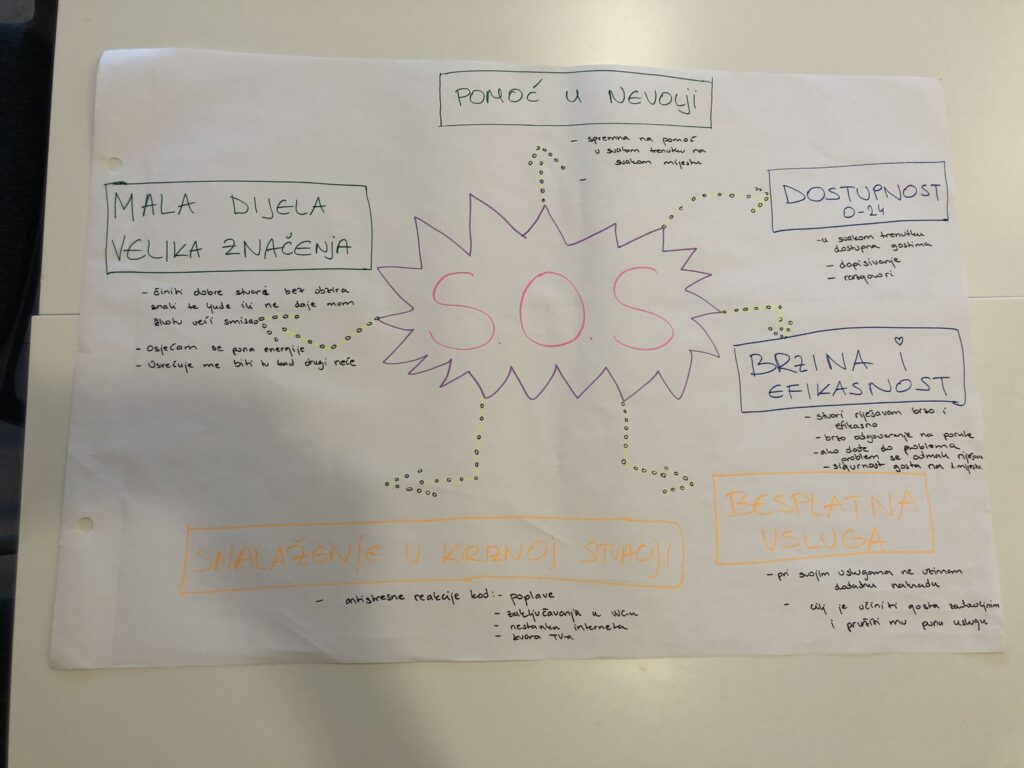 POMOĆ U NEVOLJI
- spremna na pomoć
u svakom trenutku na
svakom mjestu
-
MALA DIJELA
VELIKA ZNAČENJA
- činiti dobre stvari bez obzira
znali te ljude ili ne daje mom
životu veći smisao
- Osjećam se puna energije
- Usrećuje me biti tu kad drugi neće
S.O.S
DOSTUPNOST
0-24
- u svakom trenutku
dostupna gostima
- dopisivanje
- razgovori
BRZINA I
EFIKASNOST
- stvari riješavam brzo i
efikasno
- brzo odgovaranje na poruke
- ako dođe do problema
problem se odmah riješava
- sigurnost gosta na 1. mjestu
BESPLATNA
USLUGA
- pri svojim uslugama ne uzimam
dodatnu naknadu
- cilj je učiniti gosta zadovoljnim
i pružiti mu punu uslugu
SNALAŽENJE U KRIZNOJ SITUACIJI
- antistresne reakcije kod: - poplave
- zaključavanja u WC-u
- nestanka interneta
- kvara TV-a